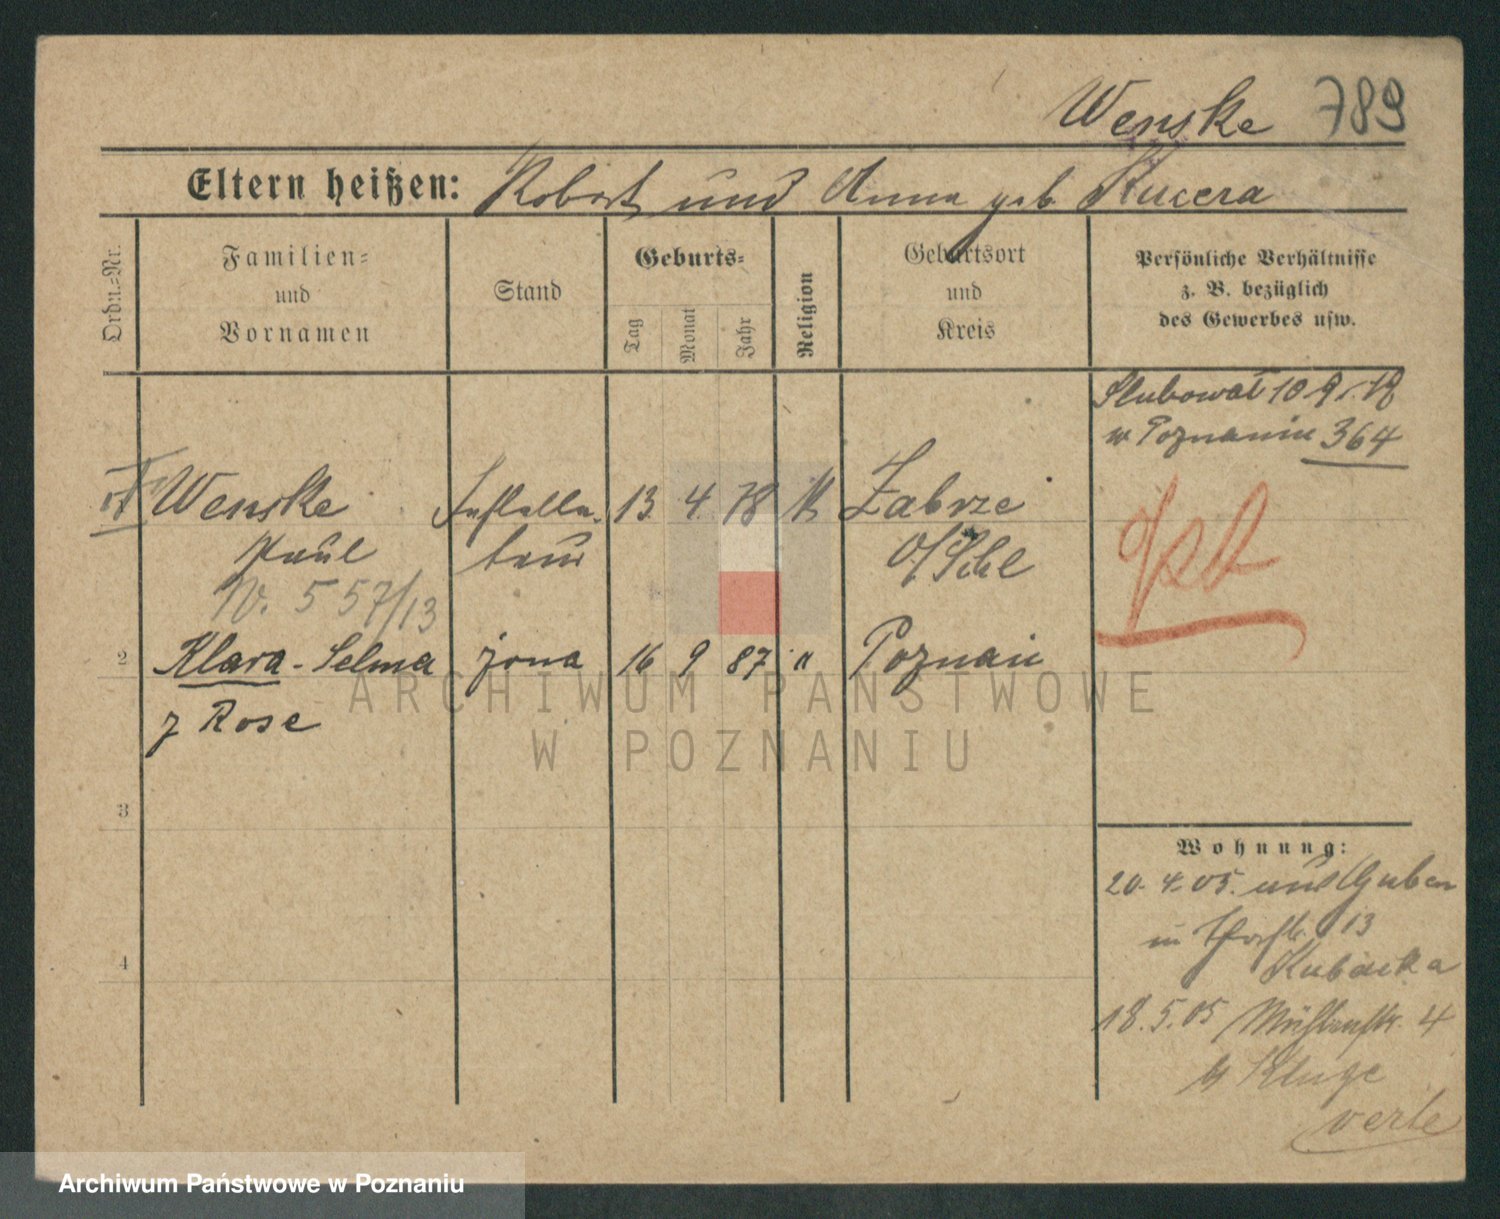 Wenske 789
Eltern heißen: Robert und Anna geb Kucera
Ordn.-Nr.
Familien-
und
Vornamen
Stand
Geburts-
Tag
Monat
Jahr
Religion
Geburtsort
und
Kreis
Persönliche Verhältnisse
z. B. bezüglich
des Gewerbes usw.
Slubowal 10.9.
w Poznaniu 364
Wenske
Paul
Installa-
teur
13. 4. 78
K
Zabrze
O/Schl
N. 557/13
2
Klara - Selma
z Rose
żona
16 9 87
"
Poznań
ARCHIWUM PAŃSTWOWE
W POZNANIU
3
4
Wohnung:
20. 4. 05. aus Guben
13
Kubacka
18. 5. 05 Mühlenstr. 4
b Kluge
verte
Archiwum Państwowe w Poznaniu